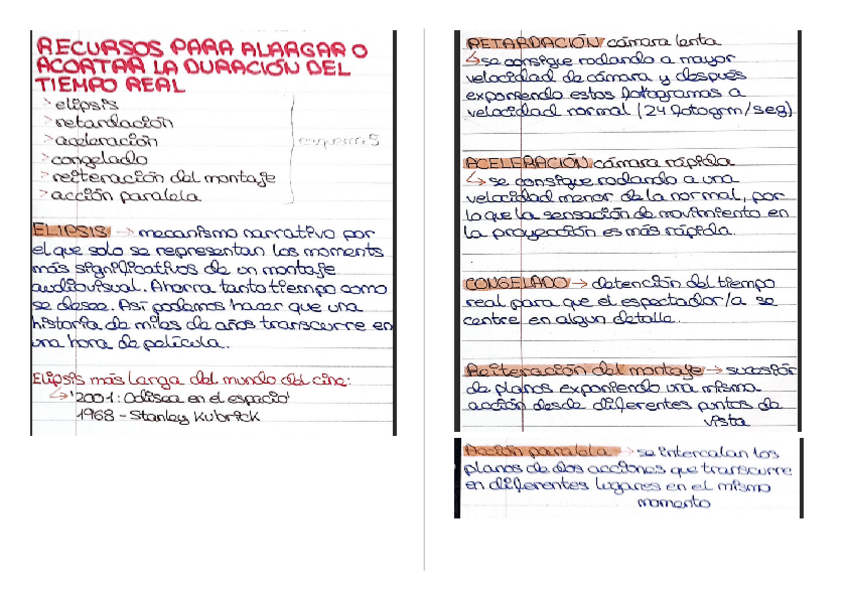 RECURSOS PARA ALARGAR O
ACORTAR LA DURACIÓN DEL
TIEMPO REAL
> elipsis
> retardación
> aceleración
> congelado
> reiteración del montaje
> acción paralela
ELIPSIS → mecanismo narrativo por
el que solo se representan los moments
más significativos de un montaje
audiovisual. Ahorra tanto tiempo como
se desee. Así podemos hacer que una
historia de miles de años transcurre en
una hora de película.
Elipsis más larga del mundo del cine:
↳ '2001: Odisea en el espacio'
1968 - Stanley Kubrick
RETARDACIÓN cámara lenta
↳ se consigue rodando a mayor
velocidad de cámara y después
exponiendo estos fotogramas a
velocidad normal (24 fotogrm/seg)
ACELERACIÓN cámara rápida
↳ se consigue rodando a una
velocidad menor de la normal, por
lo que la sensación de movimiento en
la proyección es más rápida.
CONGELADO → detención del tiempo
real para que el espectador/a se
centre en algun detalle.
Reiteración del montaje → sucesión
de planos exponiendo una misma
acción desde diferentes puntos de
vista
Acción paralela → se intercalan los
planos de dos acciones que transcurre
en diferentes lugares en el mismo
momento